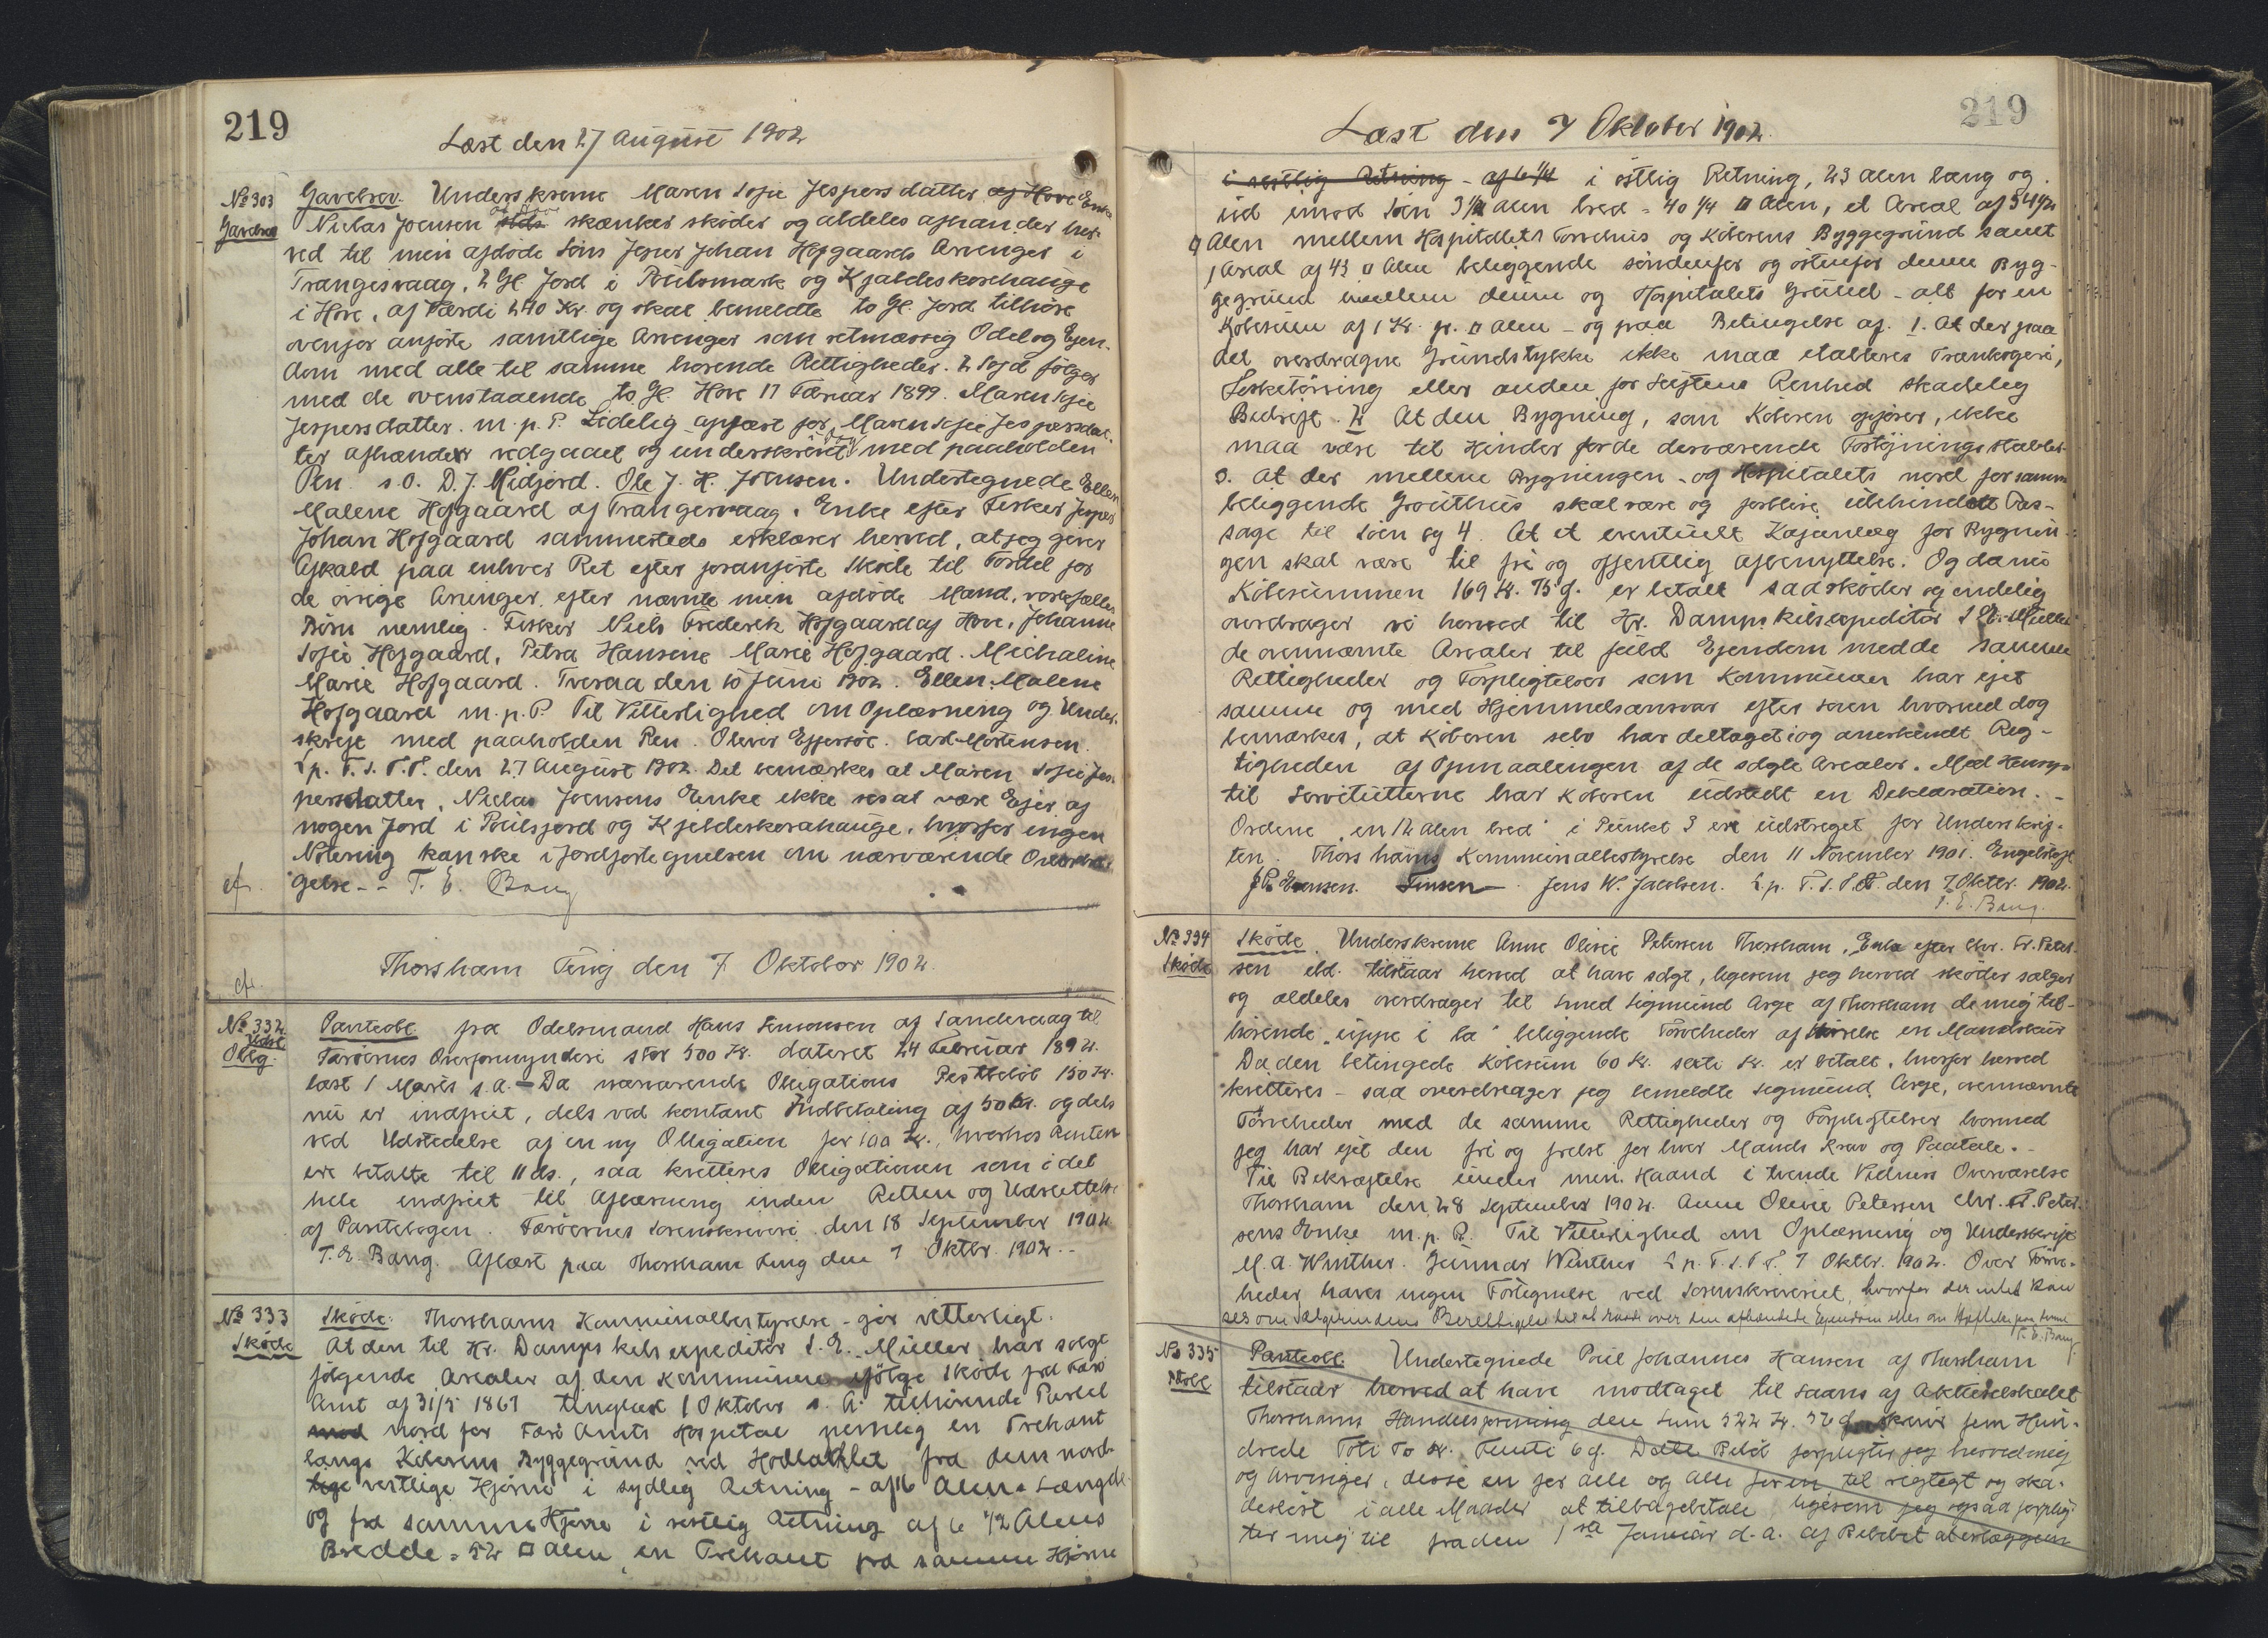 219
Læst den 27 August 1902
No 303 Gavebrev. Underskrevne Maren Sofie Jespersdatter af Hove Enke
Gavebrev Niclas Joensen skænker skøder og aldeles afhænder her-
ved til min afdøde Søns Jesper Johan Hofgaards Arvinger i
Trangisvaag, 2 Gl. Jord i og Kjaldeskorehauge
i Hove, af Værdi 240 Kr. og skal bemeldte to Gl. Jord tilhøre
ovenfor anførte samtlige Arvinger som retmæssig Odel og Ejen-
dom med alle til samme hørende Rettigheder. 2 følger
med de ovenstaaende to Gl. Hove 17 Februar 1899. Maren Sofie
Jespersdatter. m. p. P. Lydelig oplæst for Maren Sofie Jespersdat-
ter afhænder vedgaaet og underskrevet med paaholden
Pen. s. O. D. J. Midjord. Ole J. H. Joensen. Undertegnede Ellen
Malene Hofgaard af Trangisvaag, Enke efter Fisker Jesper
Johan Hofgaard sammesteds erklærer herved, at jeg giver
Afkald paa enhver Ret efter foranførte Skøde til Fordel for
de øvrige Arvinger, efter nævnte min afdøde Mand, vore fælles
Børn nemlig. Fisker Niels Frederik Hofgaard af Hove, Johanne
Sofie Hofgaard, Petra Hansine Marie Hofgaard. Michaline
Marie Hofgaard. Tveraa den 10 Juni 1902. Ellen Malene
Hofgaard m. p. P. Til Vitterlighed om Oplæsning og Under-
skrift med paaholden Pen. Oliver Effersøe. Carl Mortensen.
L. p. T. S. T. P. den 27 August 1902. Det bemærkes at Maren Sofie Jes-
persdatter, Niclas Joensens Enke ikke ses at være Ejer af
nogen Jord i og Kjeldeskorahauge, hvorfor ingen
Notering kan ske i Jordfortegnelsen om nærværende Overdra-
cf. gelse. - T. E. Bang
Thorshavn Ting den 7 Oktober 1902.
cf.
No 332 Panteobl. fra Odelsmand Hans Simonsen af Sandevaag til
Udsl. Oblg. Færøernes Overformynderi stor 500 Kr. dateret 24 Februar 1892.
læst 1 Marts s. a. - Da nærværende Obligations Restbeløb 150 Kr.
nu er indfriet, dels ved kontant Indbetaling af 50 Kr. og dels
ved Udstedelse af en ny Obligation for 100 Kr., hvorhos Renten
ere betalte til 11 ds., saa kvitteres Obligationen som i det
hele indfriet til Aflæsning inden Retten og Udslettelse
af Pantebogen. Færøernes Sorenskriveri den 18 September 1902
T. E. Bang. Aflæst paa Thorshavn Ting den 7 Oktbr. 1902. -
No 333 Skøde. Thorshavns Kommunalbestyrelse - gør vitterligt.
Skøde At den til Hr. Dampskibsexpeditør S. E. Müller har solgt
følgende Arealer af den Kommunen ifølge Skøde fra Færø
Amt af 31/5 1861 tinglæst 1 Oktober s. A. tilhørende Parcel
nord for Færø Amts Hospital nemlig en Trekant
langs Køberens Byggegrund ved fra dens nord-
vestlige Hjørne i sydlig Retning - af 16 Alens Længde
og fra samme Hjørne i vestlig Retning af 6 1/2 Alens
Bredde = 52 □ Alen, en Trekant fra samme Hjørne
219
Læst den 7 Oktober 1902.
i vestlig Retning - af 6 1/4 i østlig Retning, 23 Alen lang og
ud imod Søen 3 1/2 Alen bred = 40 1/4 □ Alen, et Areal af 34 1/2
□ Alen mellem Hospitalets Tørvehus og Køberens Byggegrund samt
1 Areal af 43 □ Alen beliggende søndenfor og østenfor denne Byg-
gegrund imellem denne og Hospitalets Grund - alt for en
Købesum af 1 Kr. pr. □ Alen - og paa Betingelse af. 1. At der paa
det overdragne Grundstykke ikke maa etableres Trankogeri,
Fisketørring eller anden for Luftens Renhed skadelig
Bedrift. 2 At den Bygning, som Køberen opfører, ikke
maa være til Hinder for de derværende Fortøjningsstabler.
3. At der mellem Bygningen og Hospitalets nord for samme
beliggende Grønthus skal være og forblive uhindret Pas-
sage til Søen og 4. At et eventuelt Kajanlæg for Bygnin-
gen skal være til fri og offentlig Afbenyttelse. Og da nu
Købesummen 169 Kr. 75 Ø. er betalt saa skøder og endelig
overdrager vi herved til Hr. Dampskibsexpeditør S. E. Müller
de ovennævnte Arealer til fuld Ejendom med de samme
Rettigheder og Forpligtelser som Kommunen har ejet
samme og med Hjemmelsansvar efter Loven hvorved dog
bemærkes, at Køberen selv har deltaget i og anerkendt Rig-
tigheden af Opmaalingen af de solgte Arealer. Med Hensyn
til Servitutterne har Køberen udstedt en Deklaration. -
Ordene "en 12 Alen bred" i Punkt 3 ere udstreget før Underskrif-
ten. Thorshavns Kommunalbestyrelse den 11 November 1901. Engelstoft
Finsen. Jens W. Jacobsen. L. p. T. S. T. P. den 7 Oktbr. 1902.
T. E. Bang.
No 334 Skøde. Underskrevne Anne Olivie Petersen Thorshavn, Enke efter Chr. Fr. Peter-
Skøde sen eld. tilstaar herved at have solgt, ligesom jeg herved skøder sælger
og aldeles overdrager til Smed Sigmund Arge af Thorshavn de mig til-
hørende "uppe i La" beliggende Tørveheder af Størrelse en
Da den betingede Købesum 60 Kr. sexti Kr. er betalt, hvorfor herved
kvitteres - saa overdrager jeg bemeldte Sigmund Arge, ovennævnte
Tørveheder med de samme Rettigheder og Forpligtelser hvormed
jeg har ejet den fri og frelst for hver Mands Krav og Paatale. -
Til Bekræftelse under min Haand i tvende Vidners Overværelse
Thorshavn den 28 September 1902. Anne Olivie Petersen Chr. Fr. Peter-
sens Enke m. p. P. Til Vitterlighed om Oplæsning og Underskrift
M. A. Winther. Gunnar Winther L. p. T. S. T. P. 7 Oktbr. 1902. Over Tørve-
heder haves ingen Fortegnelse ved Sorenskriveriet, hvorfor der intet kan
ses om Sælgerindens Berettigelse til at raade over den afhændede Ejendom eller om Hæftelse paa denne
T. E. Bang.
No 335 Panteobl. Undertegnede Poul Johannes Hansen af Thorshavn
tilstaar herved at have modtaget til Laans af Aktieselskabet
Thorshavns Handelsforening den Sum 542 Kr. 56 Ø. skriver fem Hun-
drede Toti To Kr. Femti 6 Ø. Dette Beløb forpligter jeg herved mig
og Arvinger, disse en for alle og alle for en til rigtigt og ska-
desløst i alle Maader at tilbagebetale, ligesom jeg ogsaa forplig-
ter mig til fra den 1ste Januar d. A. af Beløbet at erlægge